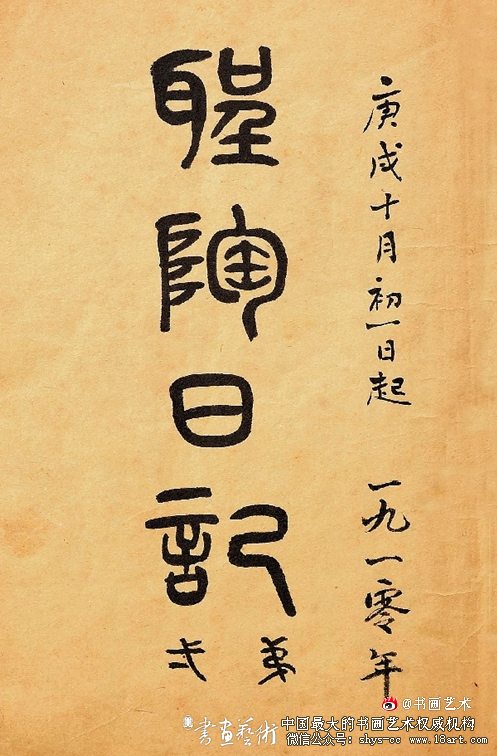 庚戌十月初一日起 一九一零年
聖陶日記
弟
弍
@书画艺术
書畫藝術
中国最大的书画艺术权威机构
微信公众号: shys-cc www.18art.com